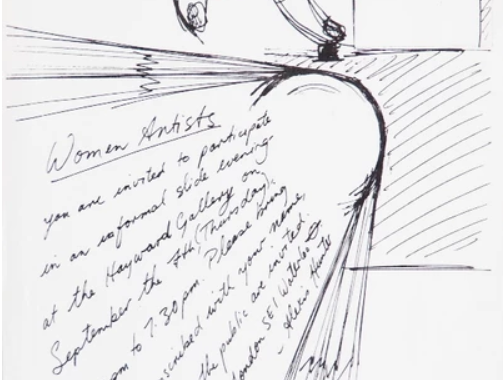 Women Artists
you are invited to participate
in an informal slide evening
at the Hayward Gallery on
September the 7th (Thursday),
pm to 7:30 pm. Please bring
scribed with your name,
the public are invited.
London SE1 Waterloo
- Alexis Hunter